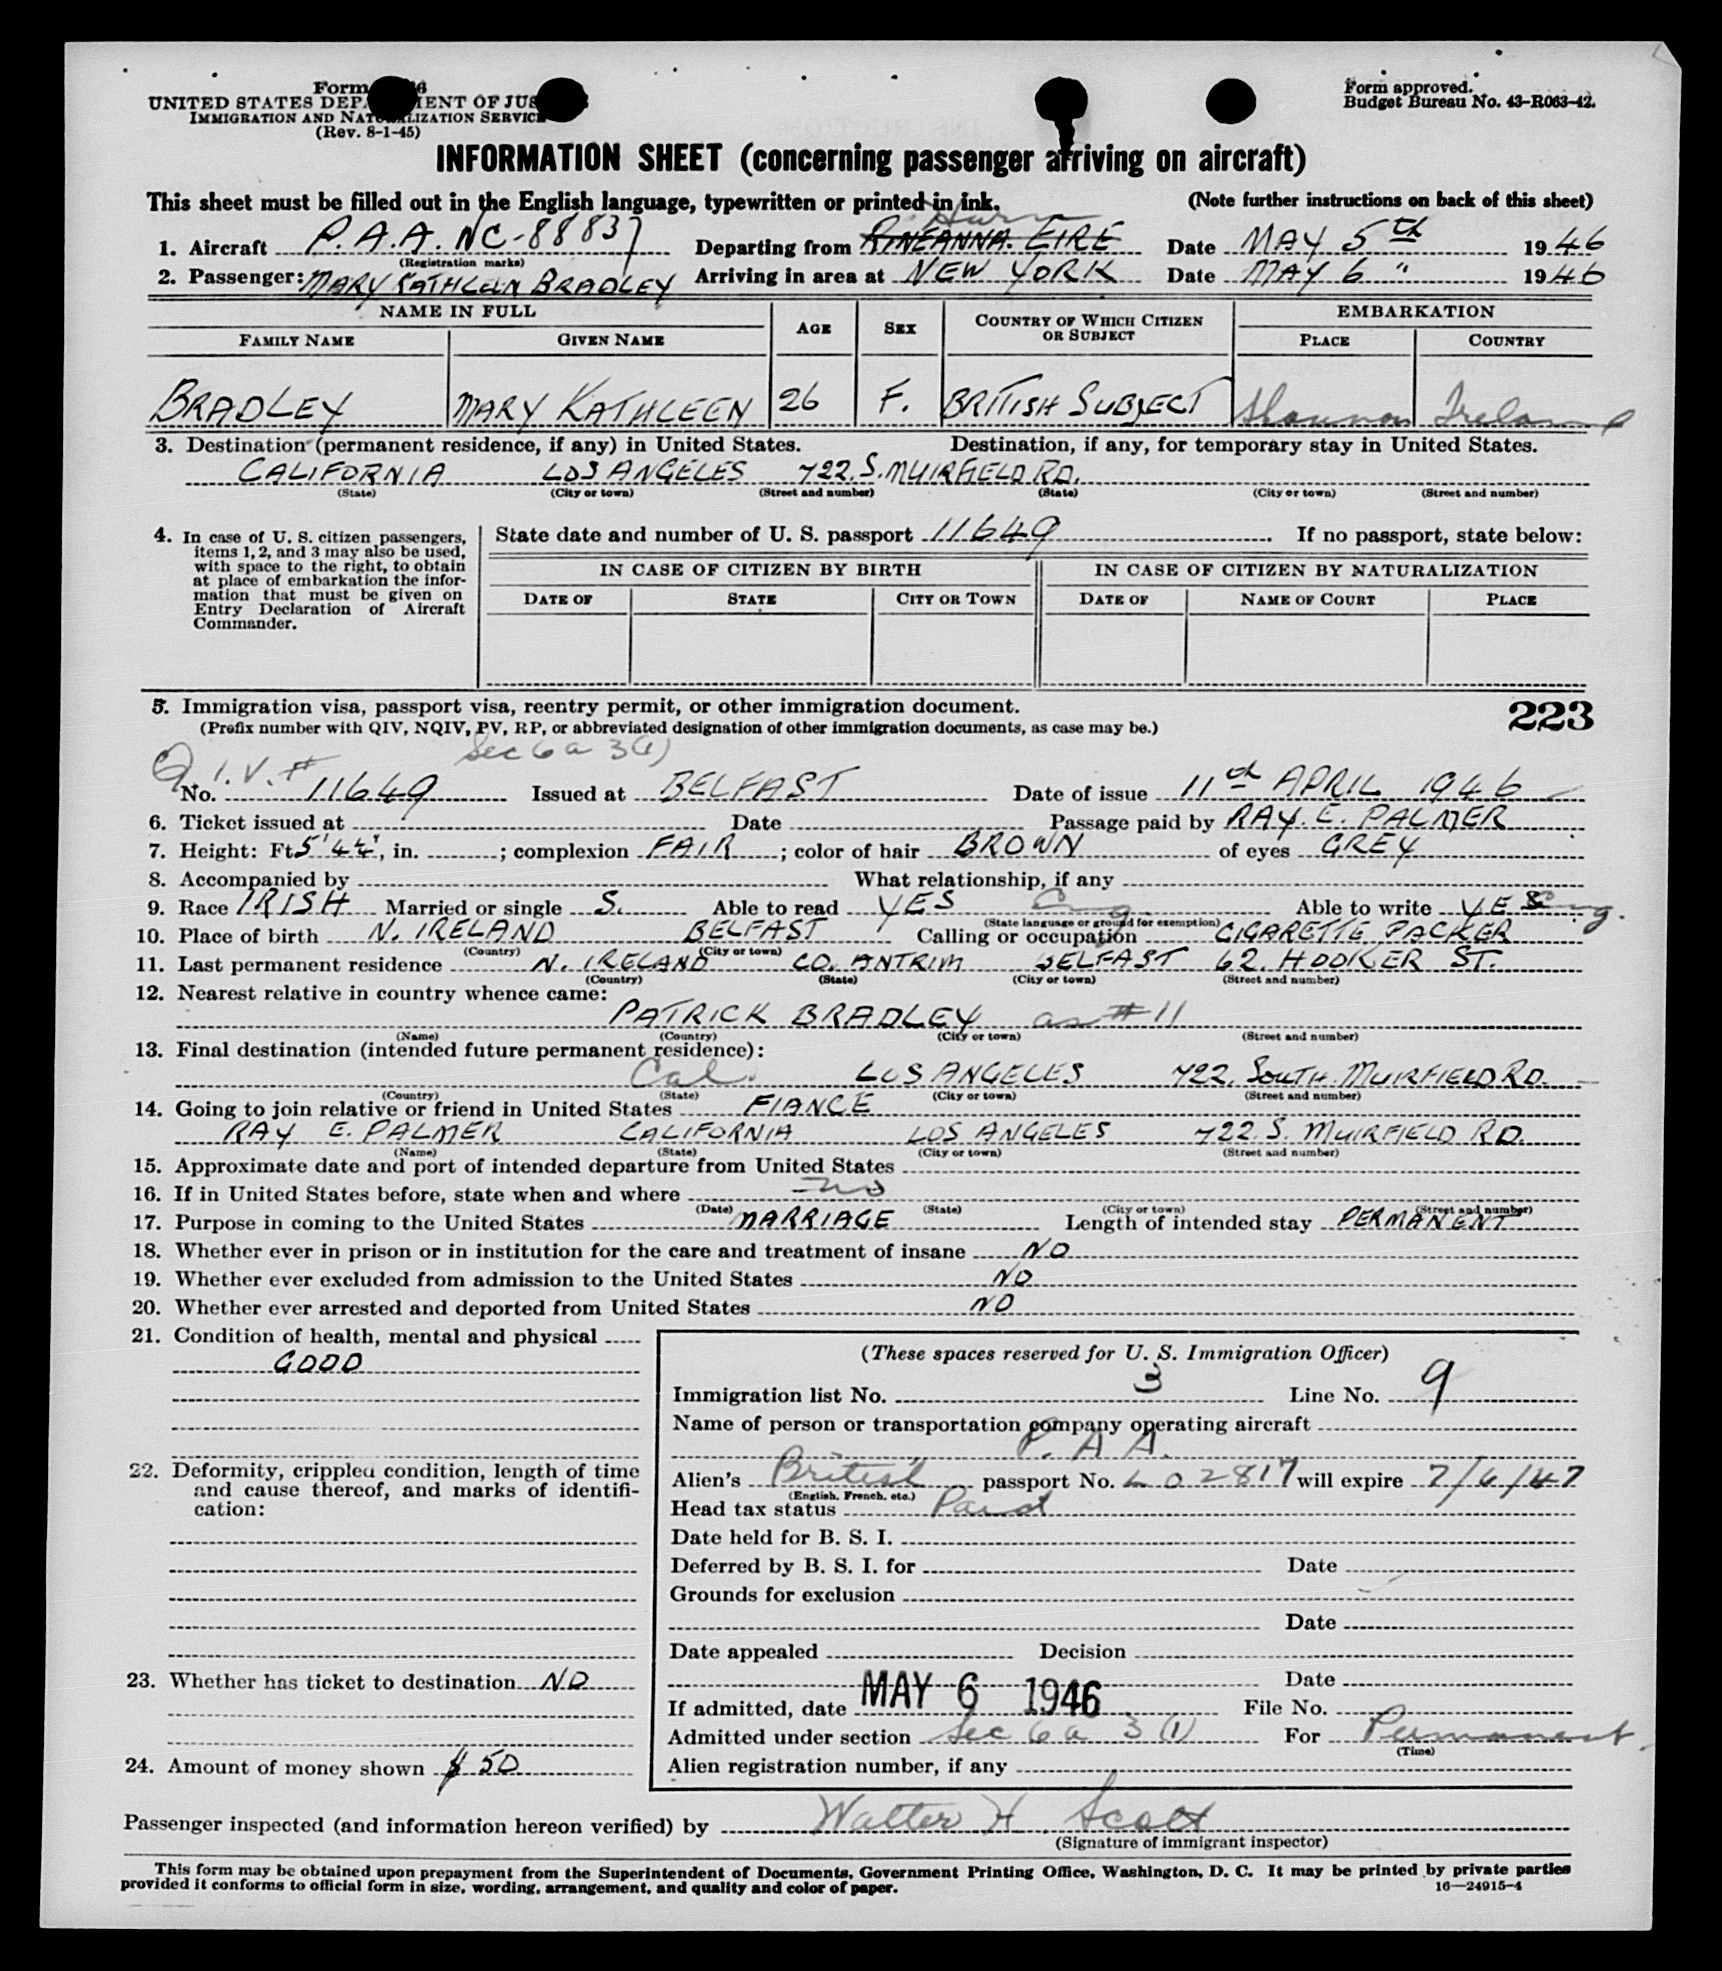 Form
UNITED STATES DEPARTMENT OF JUSTICE
IMMIGRATION AND NATURALIZATION SERVICE
(Rev. 8-1-45)
Form approved.
Budget Bureau No. 43-R063-42.
INFORMATION SHEET (concerning passenger arriving on aircraft)
This sheet must be filled out in the English language, typewritten or printed in ink. (Note further instructions on back of this sheet)
Hurn
1. Aircraft P.A.A. NC-88837 Departing from RINEANNA. EIRE Date MAY 5th 1946
(Registration marks)
2. Passenger: MARY KATHLEEN BRADLEY Arriving in area at NEW YORK Date MAY 6 " 1946
NAME IN FULL AGE SEX COUNTRY OF WHICH CITIZEN OR SUBJECT EMBARKATION
FAMILY NAME GIVEN NAME PLACE COUNTRY
BRADLEY MARY KATHLEEN 26 F. BRITISH SUBJECT Shannon Ireland
3. Destination (permanent residence, if any) in United States. Destination, if any, for temporary stay in United States.
CALIFORNIA LOS ANGELES 722. S. MUIRFIELD RD.
(State) (City or town) (Street and number) (State) (City or town) (Street and number)
4. In case of U. S. citizen passengers, items 1, 2, and 3 may also be used, with space to the right, to obtain at place of embarkation the information that must be given on Entry Declaration of Aircraft Commander.
State date and number of U. S. passport 11649 If no passport, state below:
IN CASE OF CITIZEN BY BIRTH IN CASE OF CITIZEN BY NATURALIZATION
DATE OF STATE CITY OR TOWN DATE OF NAME OF COURT PLACE
5. Immigration visa, passport visa, reentry permit, or other immigration document. 223
(Prefix number with QIV, NQIV, PV, RP, or abbreviated designation of other immigration documents, as case may be.)
Q.I.V. # Sec 6 a 3(1)
No. 11649 Issued at BELFAST Date of issue 11th APRIL 1946
6. Ticket issued at Date Passage paid by RAY. E. PALMER
7. Height: Ft. 5'4½", in. ; complexion FAIR ; color of hair BROWN of eyes GREY
8. Accompanied by What relationship, if any
9. Race IRISH Married or single S. Able to read YES Eng. Able to write YES Eng.
(State language or ground for exemption)
10. Place of birth N. IRELAND BELFAST Calling or occupation CIGARETTE PACKER
(Country) (City or town)
11. Last permanent residence N. IRELAND CO. ANTRIM BELFAST 62. HOOKER ST.
(Country) (State) (City or town) (Street and number)
12. Nearest relative in country whence came:
PATRICK BRADLEY as #11
(Name) (Country) (City or town) (Street and number)
13. Final destination (intended future permanent residence):
Cal. LOS ANGELES 722. SOUTH. MUIRFIELD RD.
(Country) (State) (City or town) (Street and number)
14. Going to join relative or friend in United States FIANCE
RAY E. PALMER CALIFORNIA LOS ANGELES 722. S. MUIRFIELD RD.
(Name) (State) (City or town) (Street and number)
15. Approximate date and port of intended departure from United States
16. If in United States before, state when and where no
(Date) (State) (City or town) (Street and number)
17. Purpose in coming to the United States MARRIAGE Length of intended stay PERMANENT
18. Whether ever in prison or in institution for the care and treatment of insane NO
19. Whether ever excluded from admission to the United States NO
20. Whether ever arrested and deported from United States NO
21. Condition of health, mental and physical
GOOD
22. Deformity, crippled condition, length of time and cause thereof, and marks of identification:
23. Whether has ticket to destination NO
24. Amount of money shown $ 50
(These spaces reserved for U. S. Immigration Officer)
Immigration list No. 3 Line No. 9
Name of person or transportation company operating aircraft
P. A A.
Alien's British passport No. L02817 will expire 2/6/47
(English, French, etc.)
Head tax status Paid
Date held for B. S. I.
Deferred by B. S. I. for Date
Grounds for exclusion
Date
Date appealed Decision
Date
If admitted, date MAY 6 1946 File No.
Admitted under section Sec 6 a 3 (1) For Permanent
(Time)
Alien registration number, if any
Passenger inspected (and information hereon verified) by Walter H Scott
(Signature of immigrant inspector)
This form may be obtained upon prepayment from the Superintendent of Documents, Government Printing Office, Washington, D. C. It may be printed by private parties
provided it conforms to official form in size, wording, arrangement, and quality and color of paper. 16—24915-4